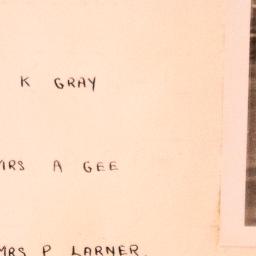 K GRAY
MRS A GEE
MRS P LARNER.